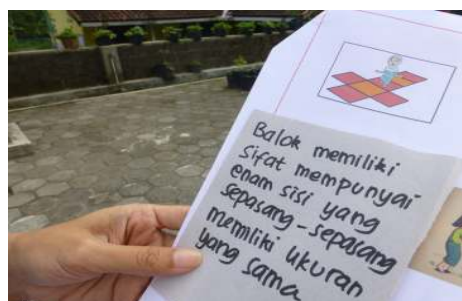 Balok memiliki
sifat mempunyai
enam sisi yang
sepasang-sepasang
memliki ukuran
yang sama